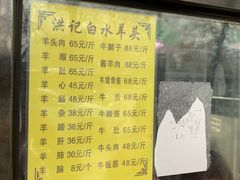 洪记白水羊头
羊头肉 65元/斤 牛腱子 88元/斤
羊眼 65元/斤 酱羊肉 88元/斤
羊肚 65元/斤 牛窝骨筋 58元/斤
羊心 45元/斤 牛舌 68元/斤
羊肠 48元/斤 牛蹄筋 65元/斤
羊杂 38元/斤 牛肚 65元/斤
羊蹄 36元/斤 牛头肉 48元/斤
羊肝 35元/斤
羊肺 30元/斤
羊脑 8元/个 牛板筋 48元/斤